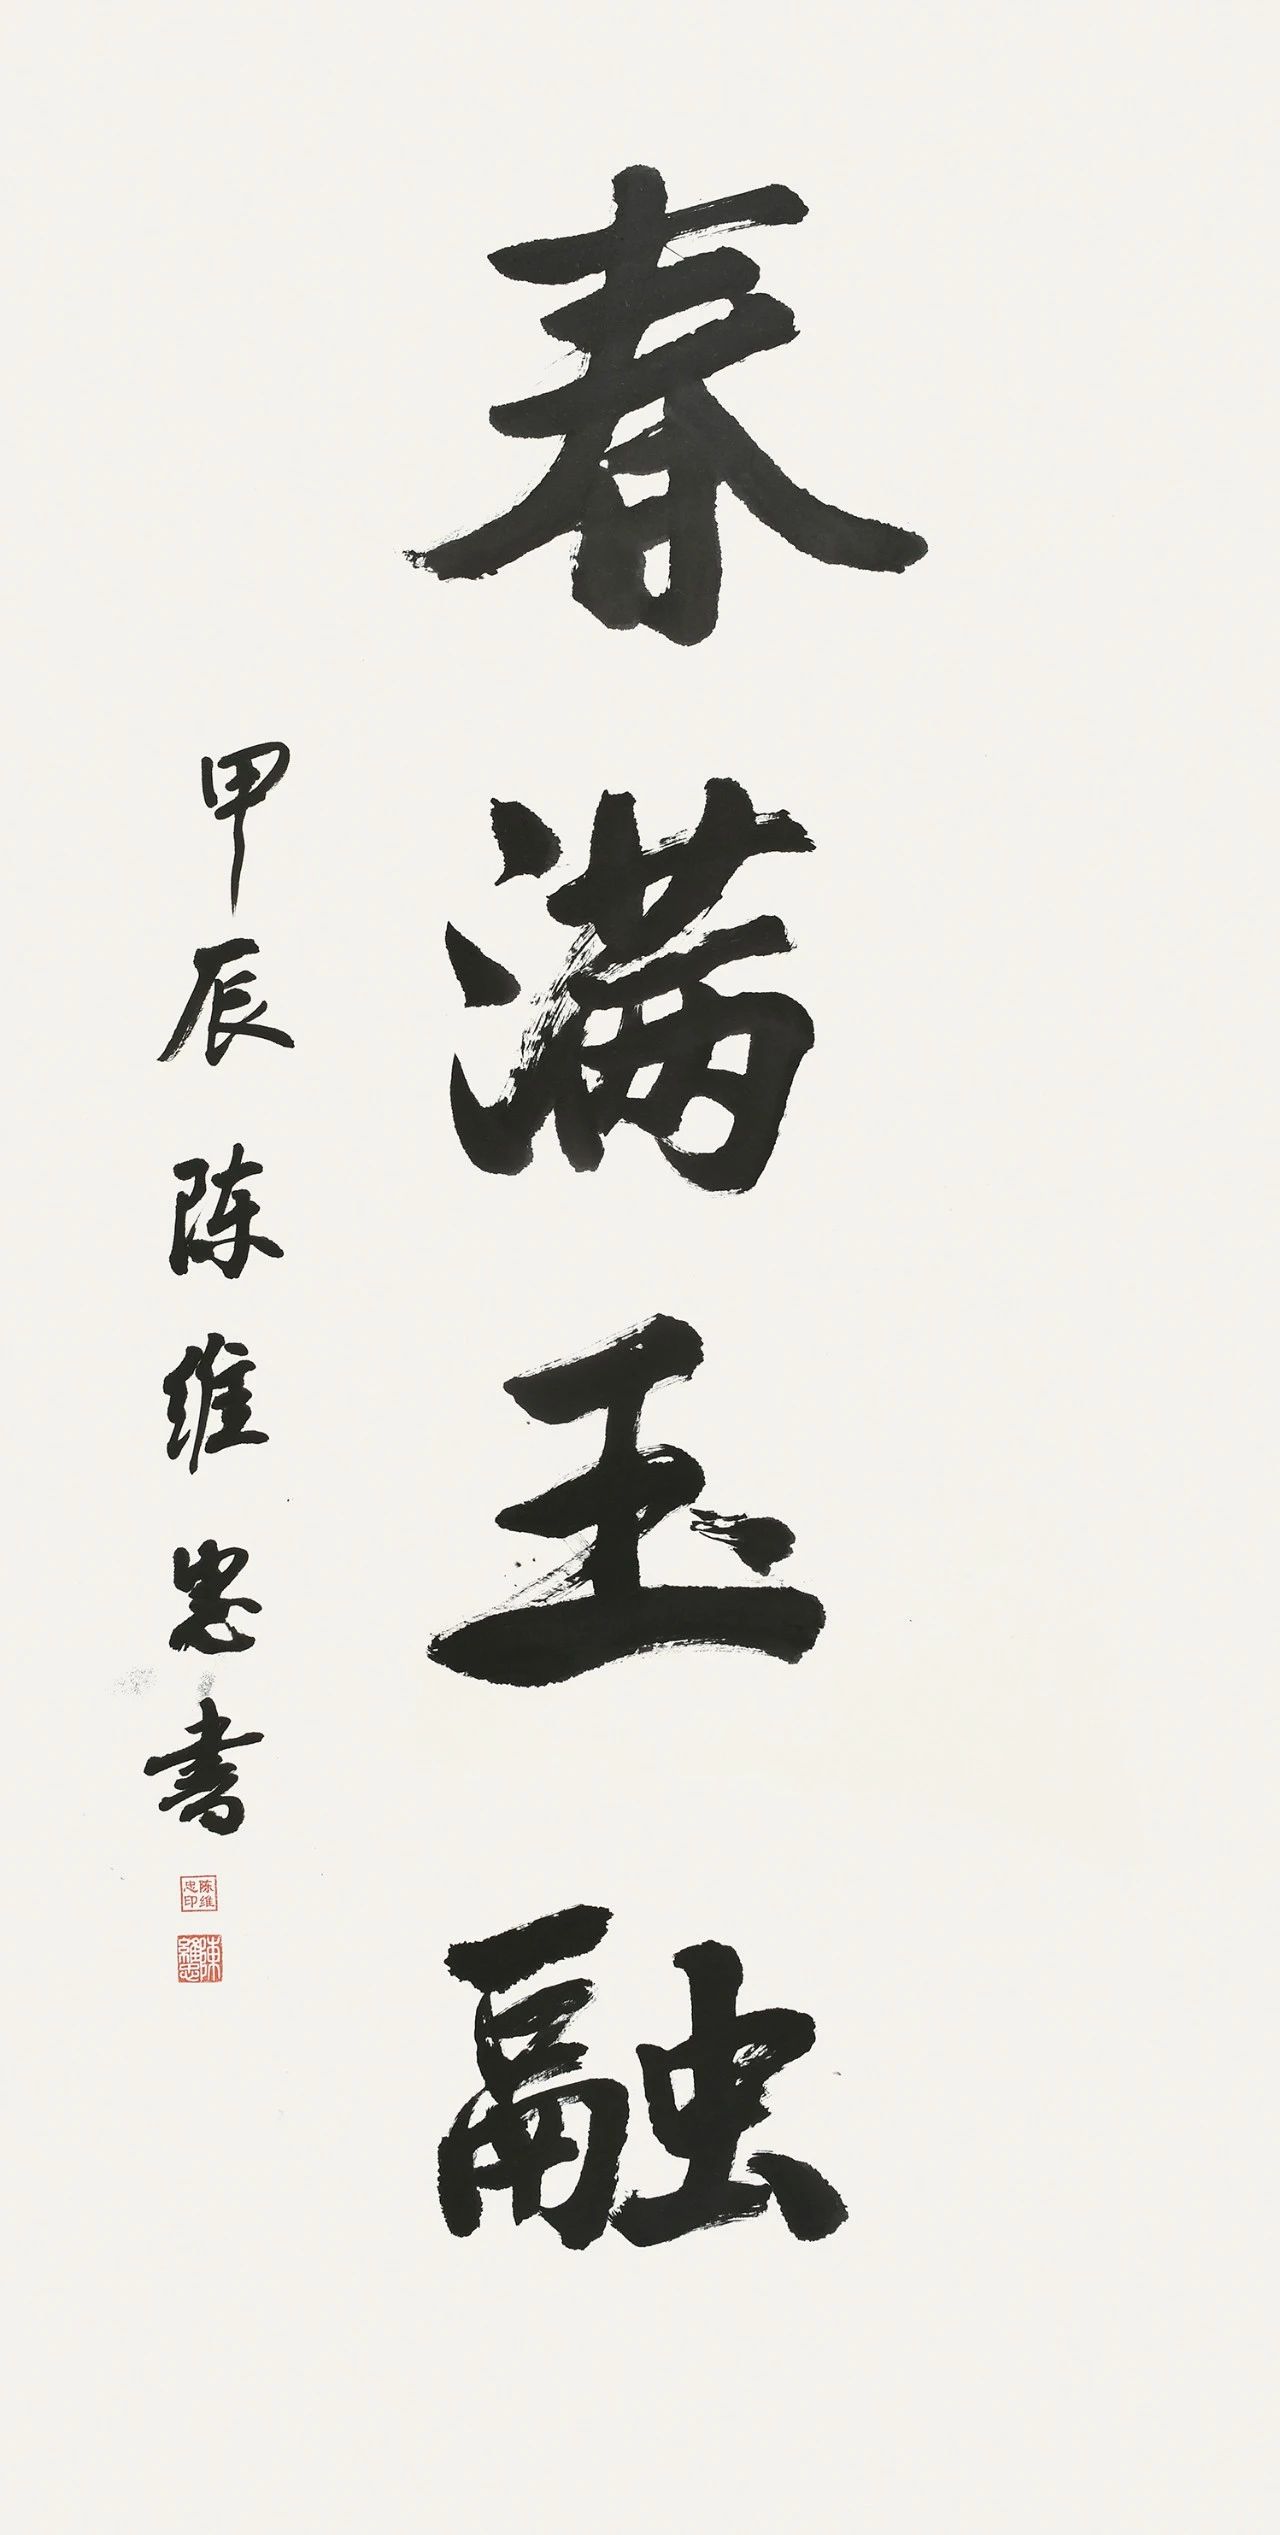 春满玉融
甲辰陈维忠书
陈维忠印
陳維忠